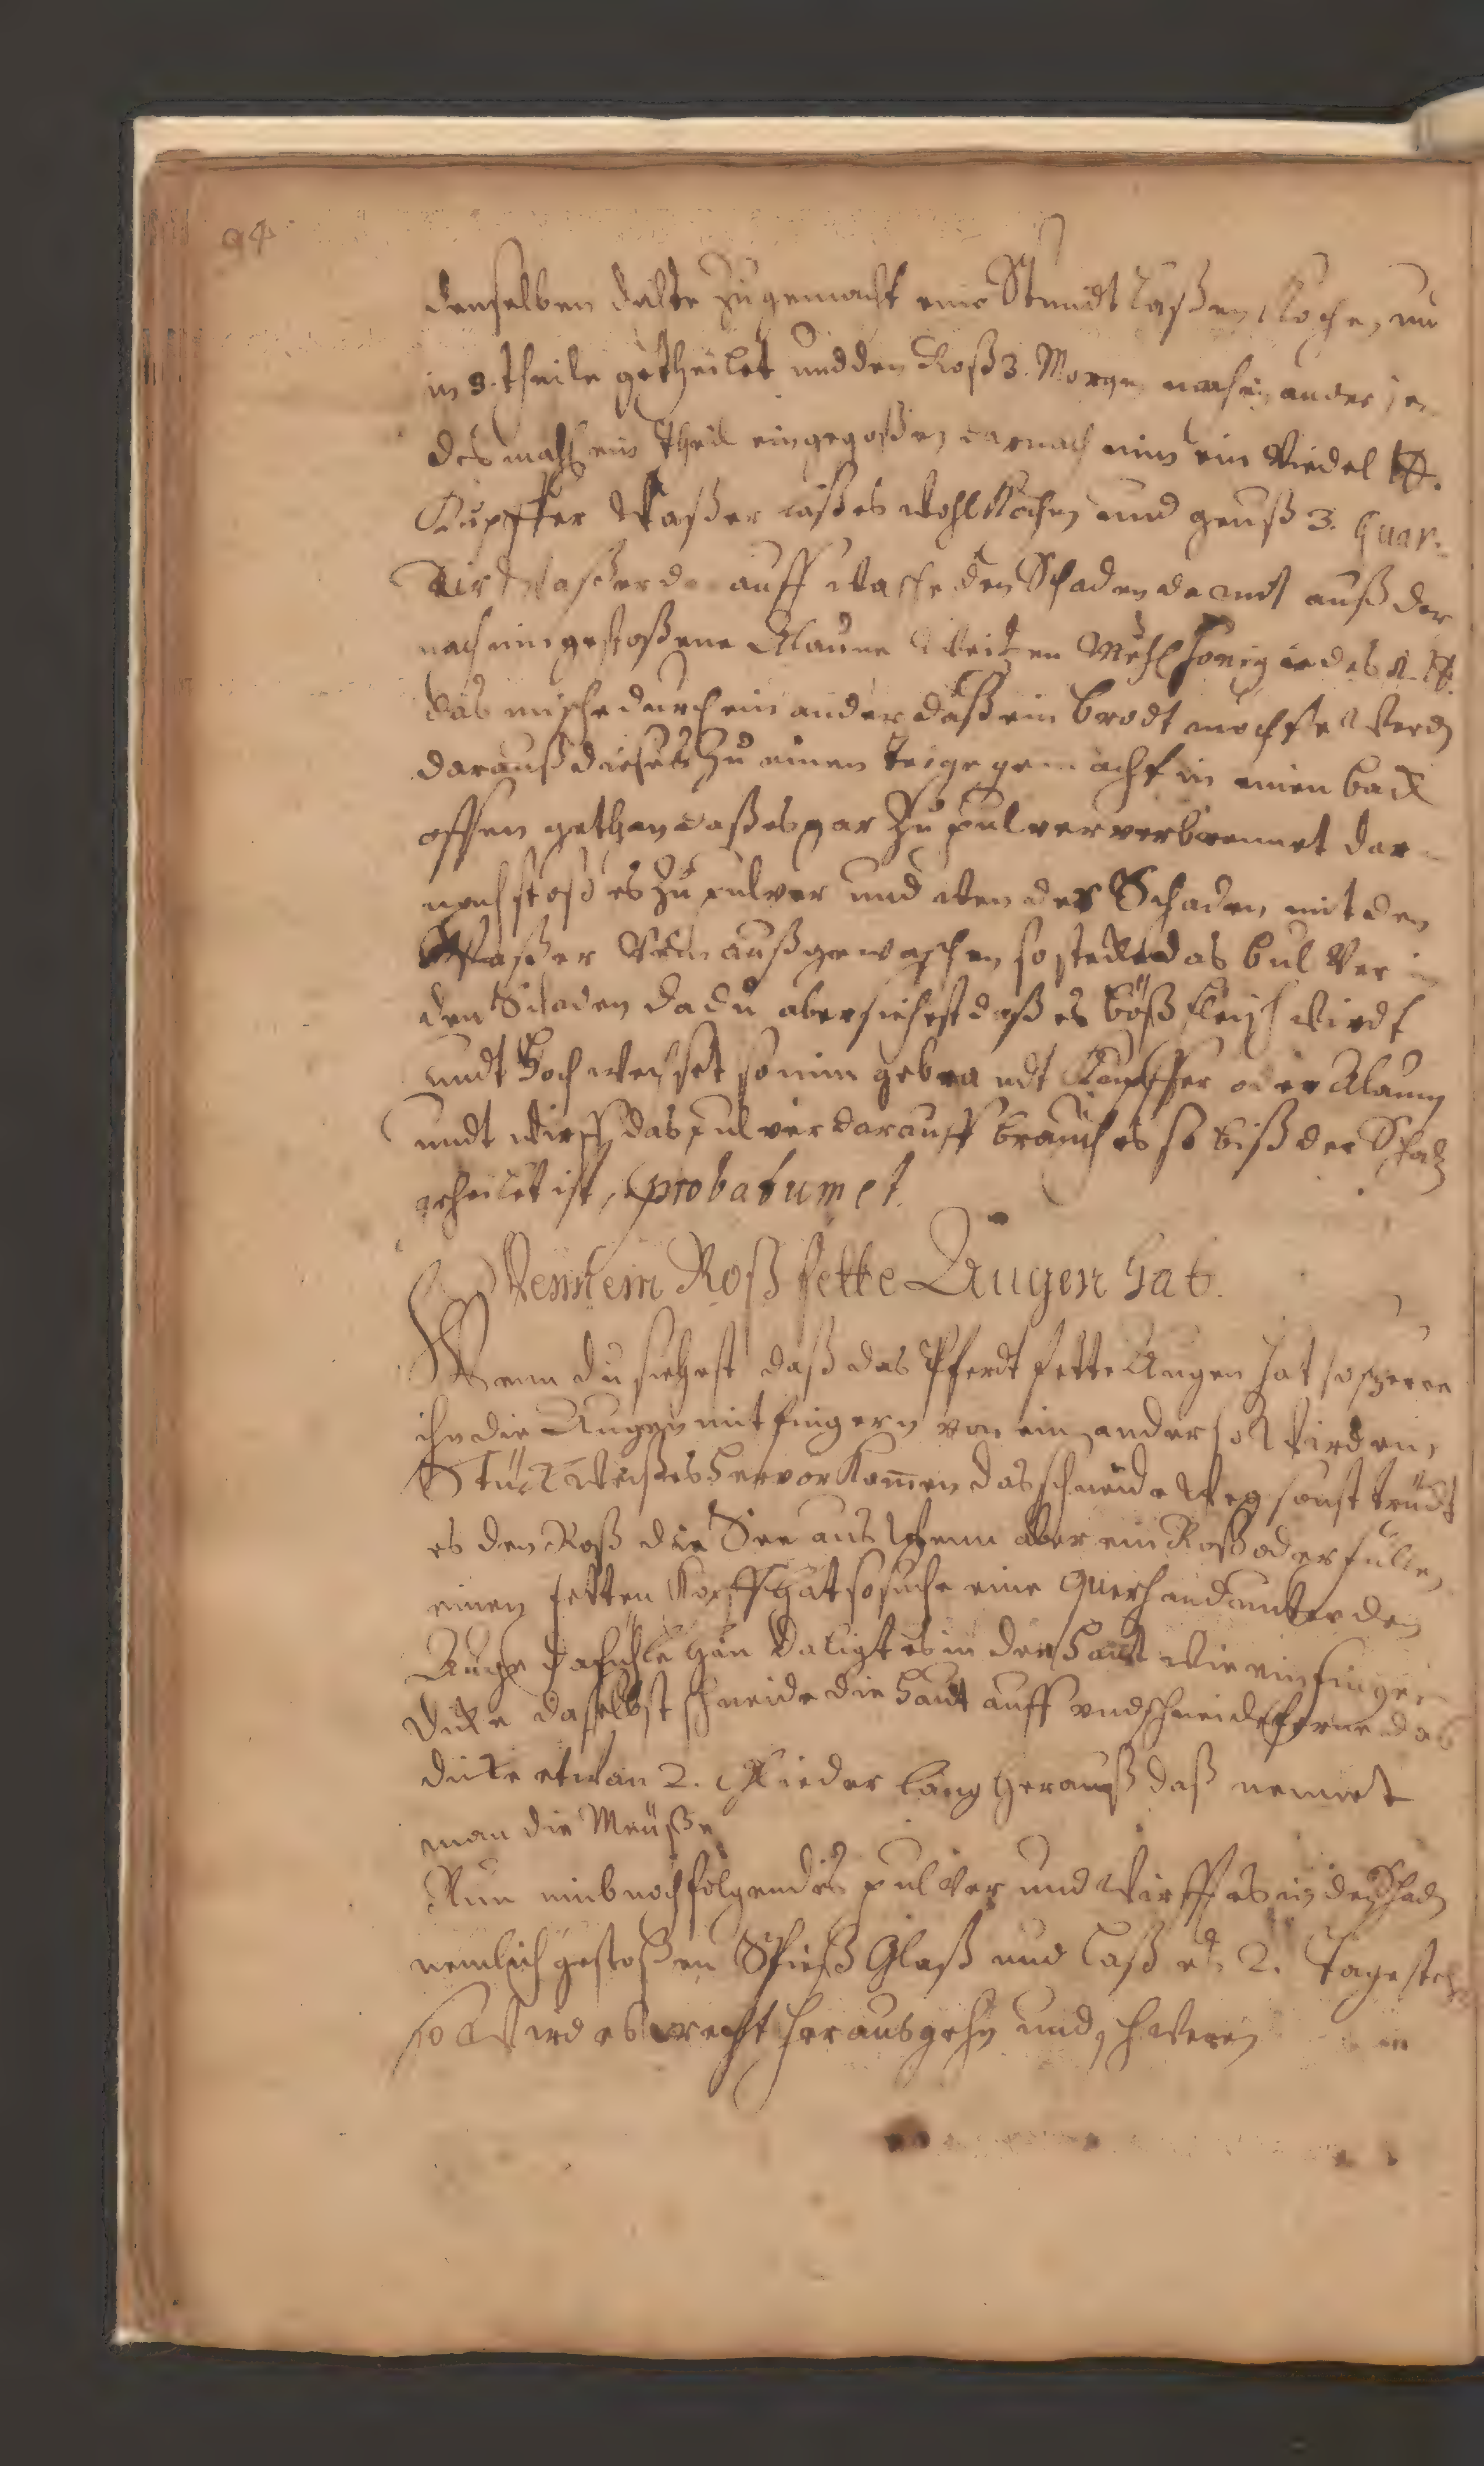 94
denselben Dalte zugemacht eine Stundt laßen Koche, un
in 3. theile getheilet und den Roß 3. Morgen nach ein ander je
des mahl ein theil eingegoßen darnach nim ein Viedel ℔.
Kupffer Waßer laß es wohl Kochen und geuß 3. Quar-
tir Waßer da auff wasche den Schaden damit auß dar
nach nim gestoßene Alaune Weitzen Mehl honig iedes 1. ℔.
das mische durch ein ander daß ein brodt mochte Werden
darauß dieses zu einen teige gemacht in einen back
offen gethan daß es gar zu pulver verbrennet dar
nach stoß es zu pulver und wen der Schaden mit den
Waßer rein außgewaschen so stecke das bulver in
den Schaden da du aber siehest daß es böß fleisch wirdt
undt hoch wechset so nim gebrandt Kupffer oder Alaun
undt wirff das pulver darauff brauch es so biß der Schad
geheilet ist, probatum et.
Wenn ein Roß fette Augen hat.
Wenn du siehest daß das Pferdt fette Augen hat so sperre
ihn die Augen mit fingern von ein ander so Wird ein
Stück weißes hervor Komen das schneide Weg sonst trüdt
es den Roß die See aus Wenn aber ein Roß oder fülle
einen fetten Kopff hat so suche eine querhandt unter den
Auge da fühle hin da ligt es in der Haut wie ein finger
dicke daselbst schneide die Haut auff und schneide ferne das
dicke etwan 2. Glieder lang herauß daß nennet
man die Meüße
Nun nimb nachfolgendes pulver und wirff es in den Schad
nemlich gestoßen Spieß Glaß und laß es 2. Tage steh
so Wird es recht heraus gehn und schweren